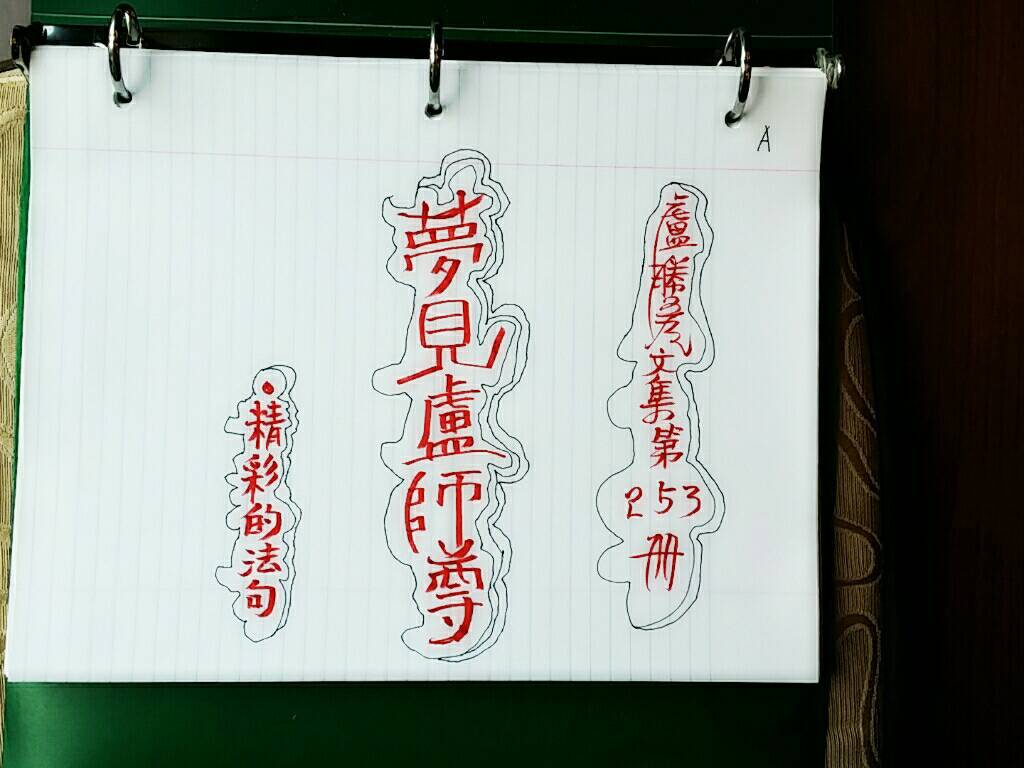 A
盧勝彥文集第253冊
夢見盧師尊
•精彩的法句